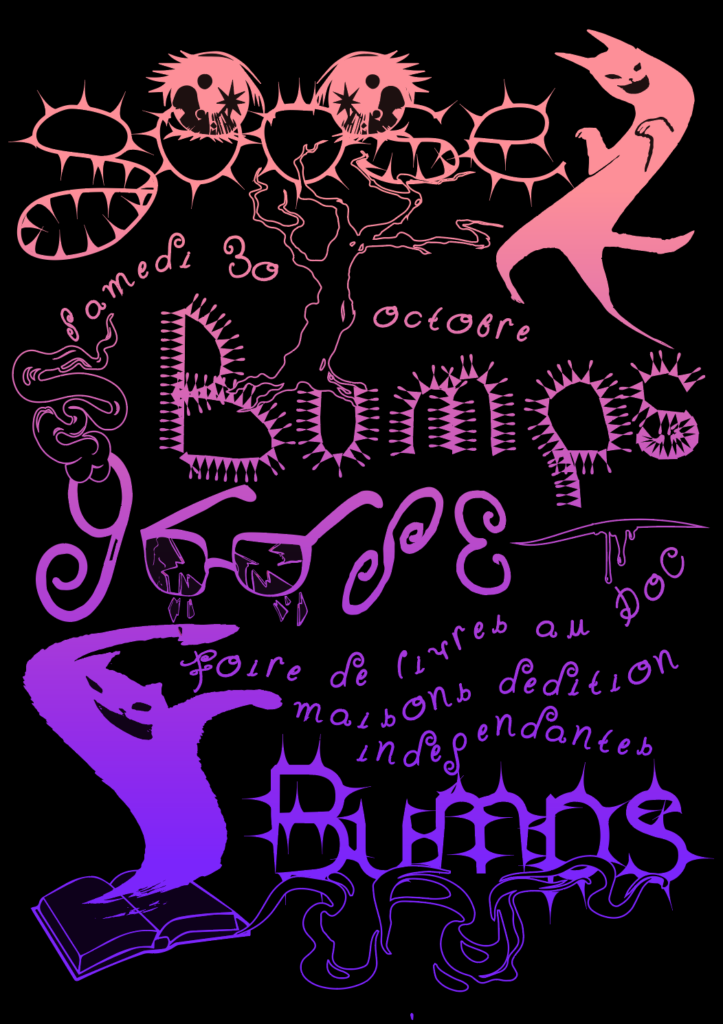 goose
samedi 30 octobre
Bumps
goose
foire de livres au DOC
maisons dedition
independantes
Bumps